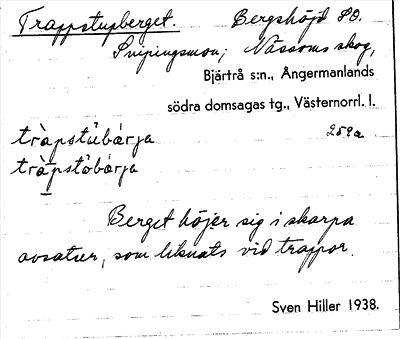 Trappstupberget. Bergshöjd SO.
Snipingsmon; Nässoms skog,
Bjärtrå s:n., Ångermanlands
södra domsagas tg., Västernorrl. l.
259a
tràpstùbárja
tràpstòbárja
Berget höjer sig i skarpa
avsatser, som liknats vid trappor.
Sven Hiller 1938.